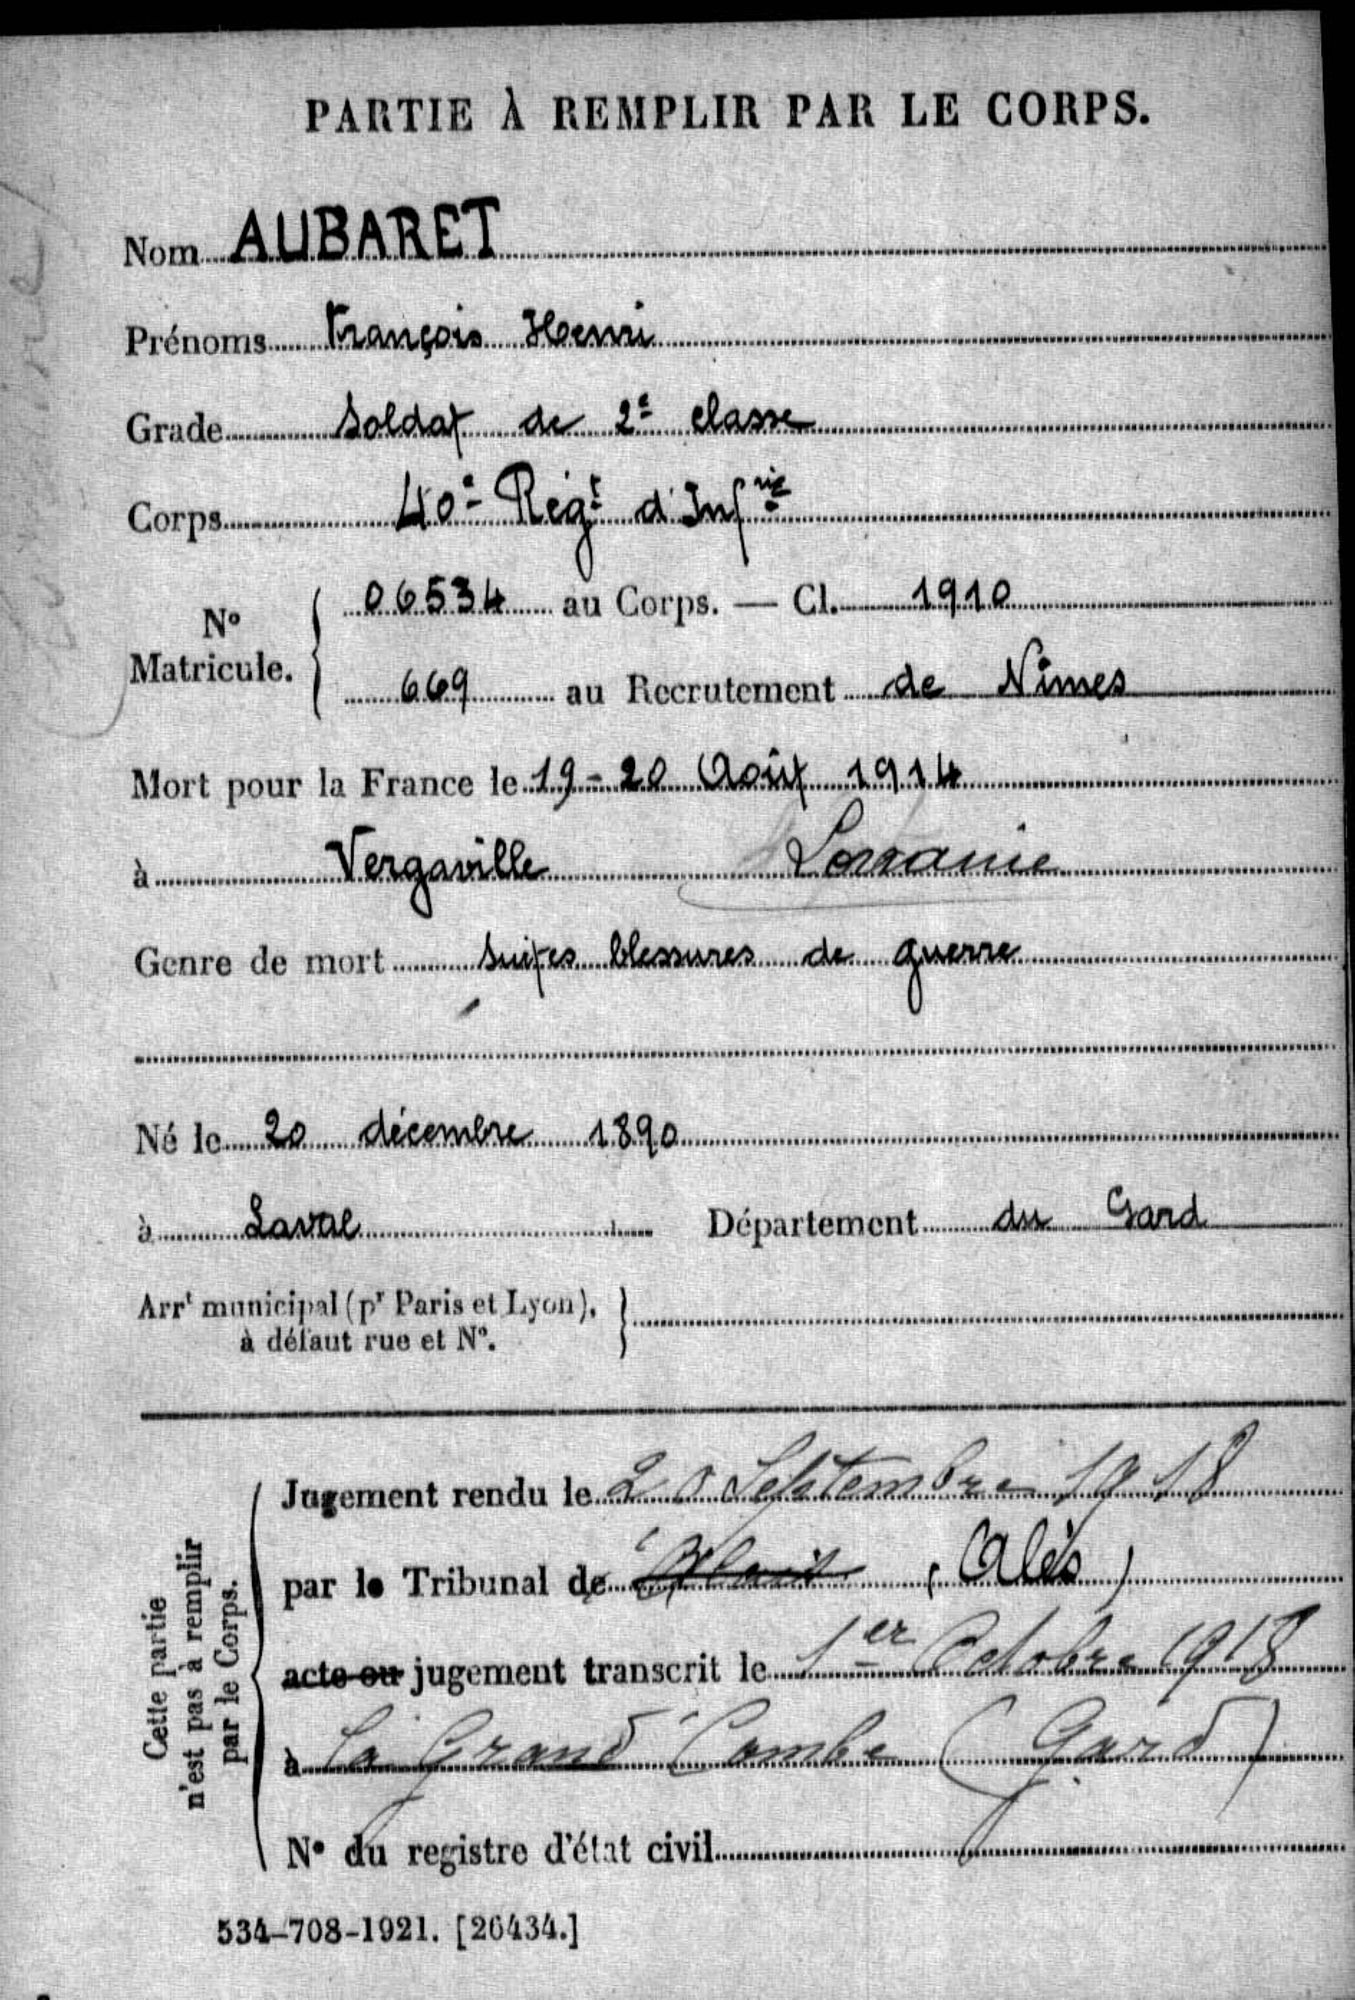 PARTIE À REMPLIR PAR LE CORPS.
Nom AUBARET
Prénoms François Henri
Grade Soldat de 2e classe
Corps 40e Régt d'Infrie
No Matricule. { 06534 au Corps. — Cl. 1910
669 au Recrutement de Nîmes
Mort pour la France le 19-20 Août 1914
à Vergaville Lorraine
Genre de mort suites blessures de guerre
Né le 20 décembre 1890
à Laval Département du Gard
Arrt municipal (pr Paris et Lyon), }
à défaut rue et No.
Cette partie
n'est pas à remplir
par le Corps.
Jugement rendu le 20 Septembre 1918
par le Tribunal de Alais (Alès)
acte ou jugement transcrit le 1er Octobre 1918
à La Grand Combe (Gard)
No du registre d'état civil
534-708-1921. [26434.]